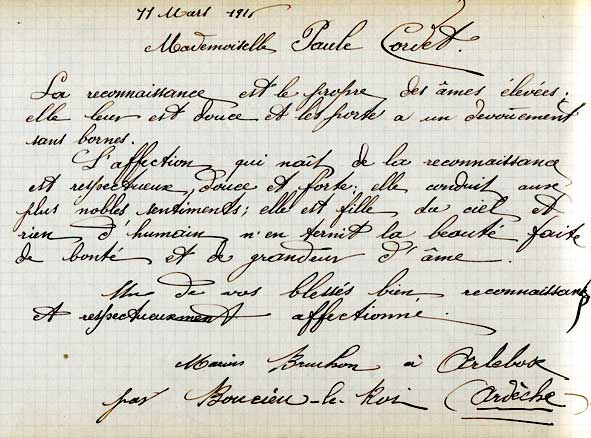 11 Mars 1916
Mademoiselle Paule Cordet.
La reconnaissance est le propre des âmes élevées;
elle leur est douce et les porte a un dévouement
sans bornes.
L'affection qui naît de la reconnaissance
est respectueux, douce et forte; elle conduit aux
plus nobles sentiments; elle est fille du ciel et
rien d'humain n'en ternit la beauté faite
de bonté et de grandeur d'âme.
Un de vos blessés bien reconnaissant
et respectueusement affectionné.
Marius Bruchon à Arlebosc
par Boucieu-le-Roi (Ardèche)